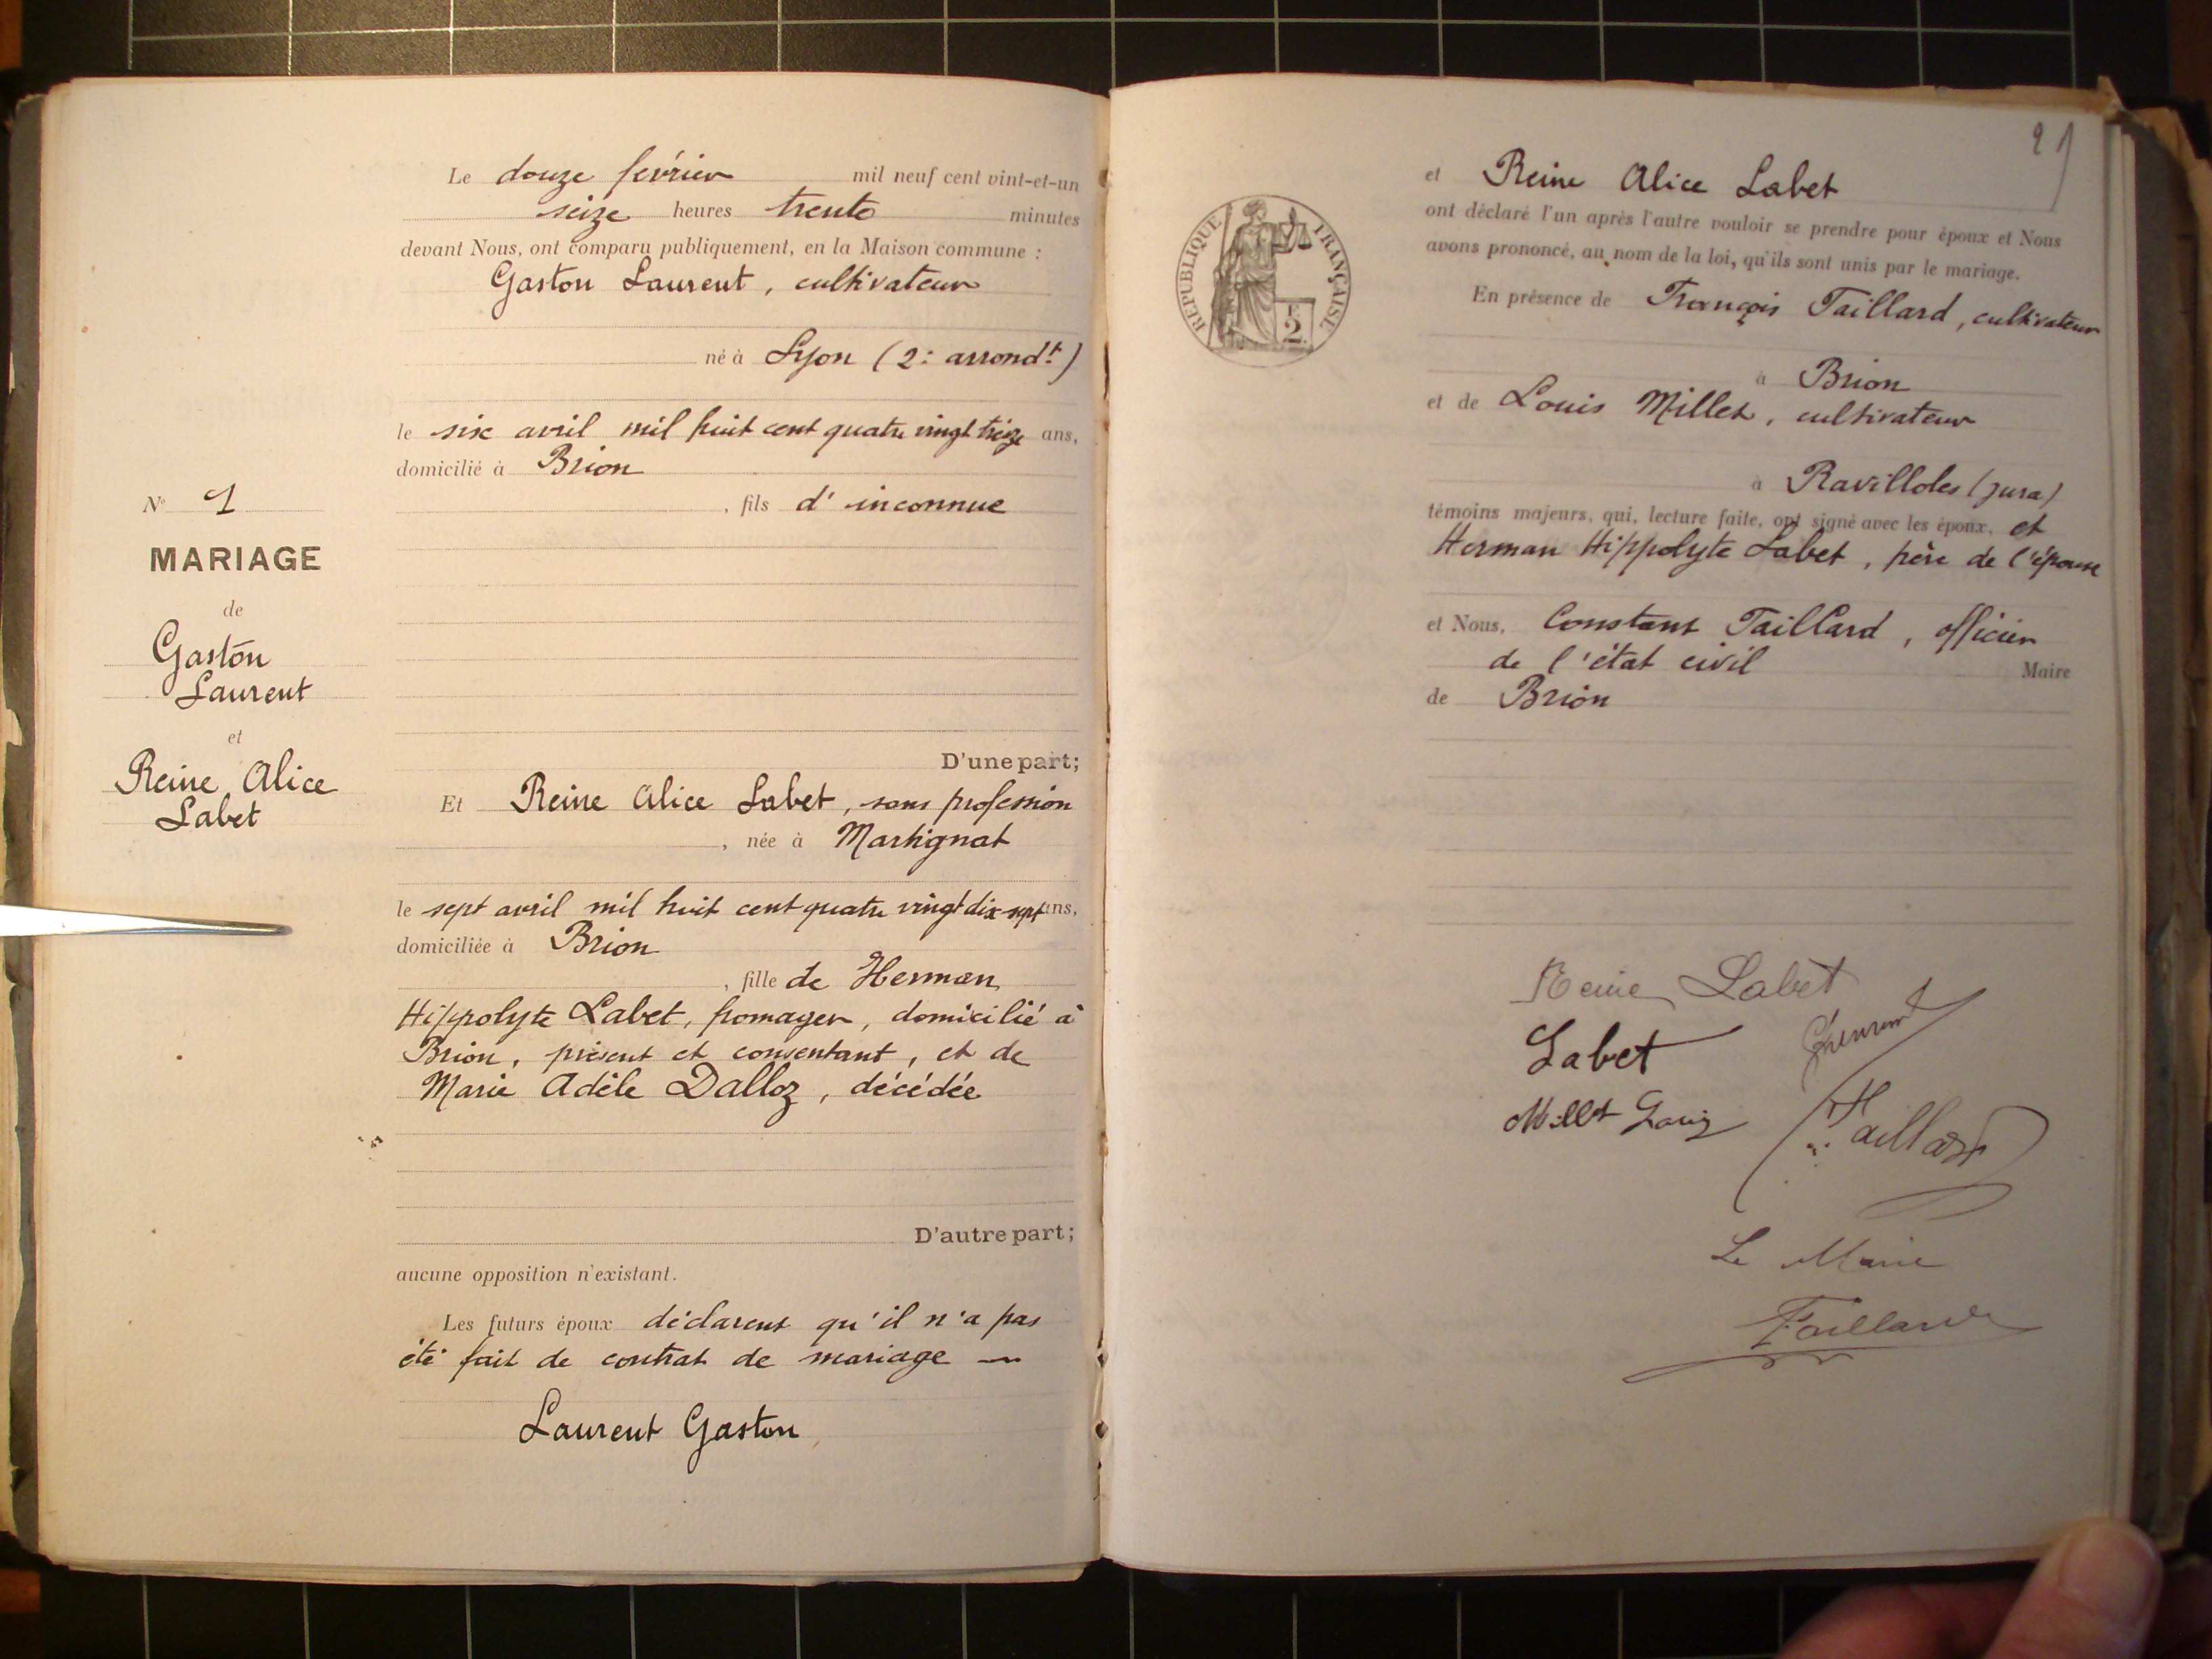 Le douze février mil neuf cent vint-et-un
seize heures trente minutes
devant Nous, ont comparu publiquement, en la Maison commune :
Gaston Laurent, cultivateur
né à Lyon (2e arrondt)
le six avril mil huit cent quatre vingt treize ans,
domicilié à Brion
, fils d'inconnue
N° 1
MARIAGE
de
Gaston
Laurent
et
Reine Alice
Labet
D'une part;
Et Reine Alice Labet, sans profession
, née à Martignat
le sept avril mil huit cent quatre vingt dix-sept ans,
domiciliée à Brion
, fille de Herman
Hippolyte Labet, fromager, domicilié à
Brion, présent et consentant, et de
Marie Adèle Dalloz, décédée
D'autre part;
aucune opposition n'existant.
Les futurs époux déclarent qu'il n'a pas
été fait de contrat de mariage
Laurent Gaston
21
RÉPUBLIQUE FRANÇAISE
2
et Reine Alice Labet
ont déclaré l'un après l'autre vouloir se prendre pour époux et Nous
avons prononcé, au nom de la loi, qu'ils sont unis par le mariage.
En présence de François Taillard, cultivateur
à Brion
et de Louis Millet, cultivateur
à Ravilloles (Jura)
témoins majeurs, qui, lecture faite, ont signé avec les époux, et
Herman Hippolyte Labet, père de l'épouse
et Nous, Constant Taillard, officier
de l'état civil Maire
de Brion
Reine Labet
Labet
Millet Louis
Taillard
Le Maire
Taillard